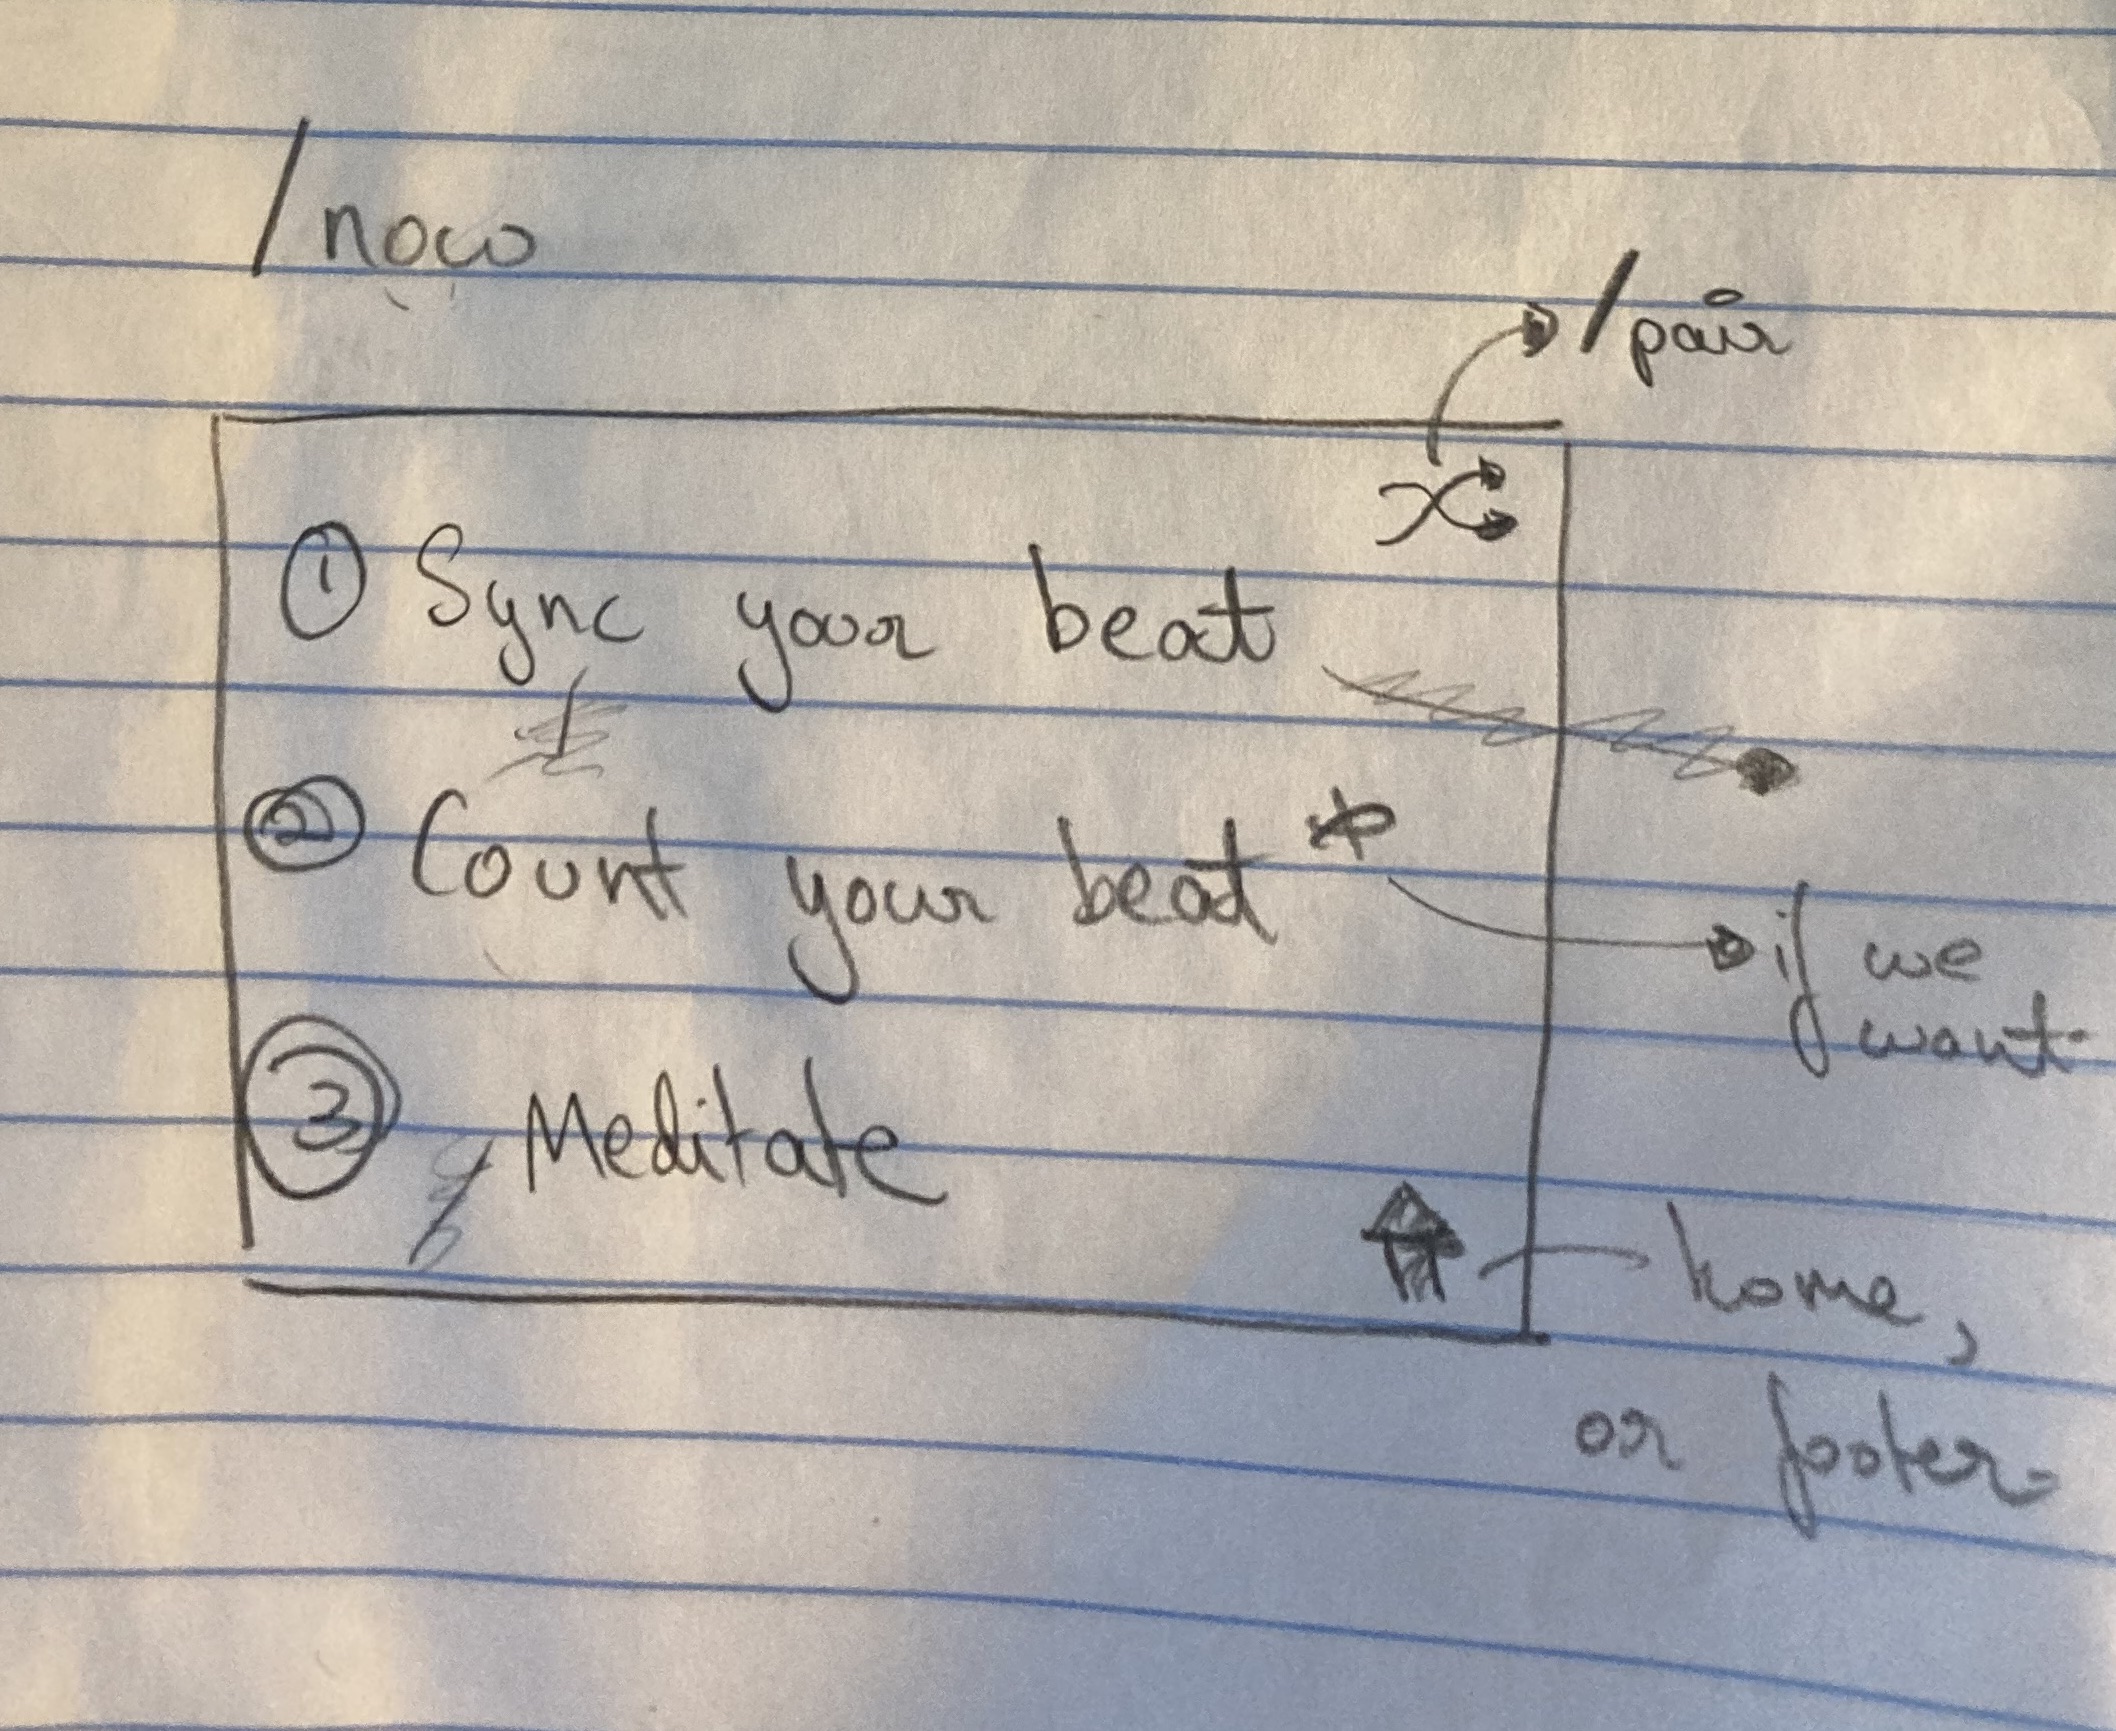 /now
/pair
① Sync your beat
② Count your beat *
if we
want.
③ Meditate
home,
or footer.